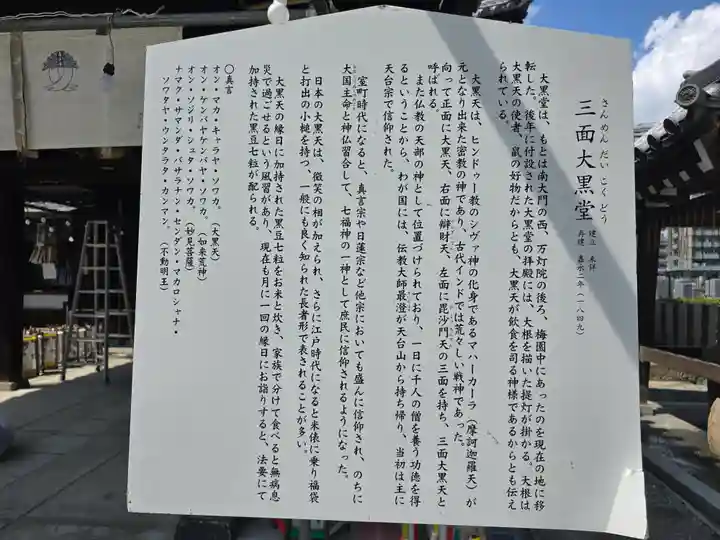 さんめんだいこくどう
三面大黒堂
建立 未詳
再建 嘉永二年(一八四九)
大黒堂は、もとは南大門の西、万灯院の後ろ、梅園中にあったのを現在の地に移
転した。後年に付設された大黒堂の拝殿には、大根を描いた提灯が掛かる。大根は
大黒天の使者、鼠の好物だからとも、大黒天が飲食を司る神様であるからとも伝え
られている。
大黒天は、ヒンドゥー教のシヴァ神の化身であるマハーカーラ(摩訶迦羅天)が
元となり出来た密教の神であり、古代インドでは荒々しい戦神であった。
向って正面に大黒天、右面に辯財天、左面に毘沙門天の三面を持ち、三面大黒天と
呼ばれる。
また仏教の天部の神として位置づけられており、一日に千人の僧を養う功徳を得
るということから、わが国には、伝教大師最澄が天台山から持ち帰り、当初は主に
天台宗で信仰された。
室町時代になると、真言宗や日蓮宗など他宗においても盛んに信仰され、のちに
大国主命と神仏習合して、七福神の一神として庶民に信仰されるようになった。
日本の大黒天は、微笑の相が加えられ、さらに江戸時代になると米俵に乗り福袋
と打出の小槌を持つ、一般にも良く知られた長者形で表されることが多い。
大黒天の縁日に加持された黒豆七粒をお米と炊き、家族で分けて食べると無病息
災で過ごせるという風習があり、現在も月に一回の縁日にお詣りすると、法要にて
加持された黒豆七粒が配られる。
○真言
オン・マカ・キャラヤ・ソワカ。(大黒天)
オン・ケンバヤケンバヤ・ソワカ。(如来荒神)
オン・ソジリ・シュタ・ソワカ。(妙見菩薩)
ナマク・サマンダ・バサラナン・センダン・マカロシャナ・
ソワタヤ・ウンタラタ・カンマン。(不動明王)